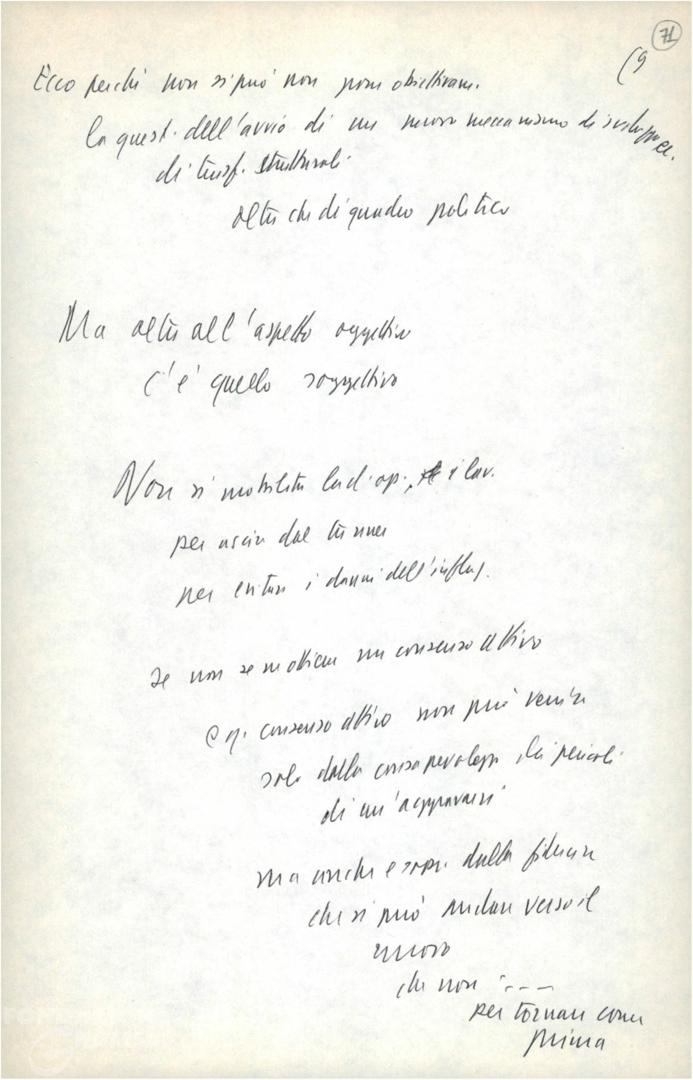 71
(9
Ecco perchè non si può non porre obiettivam.
la quest. dell'avvio di un nuovo meccanismo di sviluppo ec.
di trasf. strutturali
oltre che di quadro politico
Ma oltre all'aspetto oggettivo
c'è quello soggettivo
Non si mobilita la cl. op., i lav.
per uscire dal tunnel
per evitare i danni dell'inflaz.
se non se ne ottiene un consenso attivo
e q. consenso attivo non può venire
solo dalla consapevolezza dei pericoli
di un'aggravarsi
ma anche e sopr. dalla fiducia
che si può andare verso il
nuovo
che non "---
per tornare come
prima